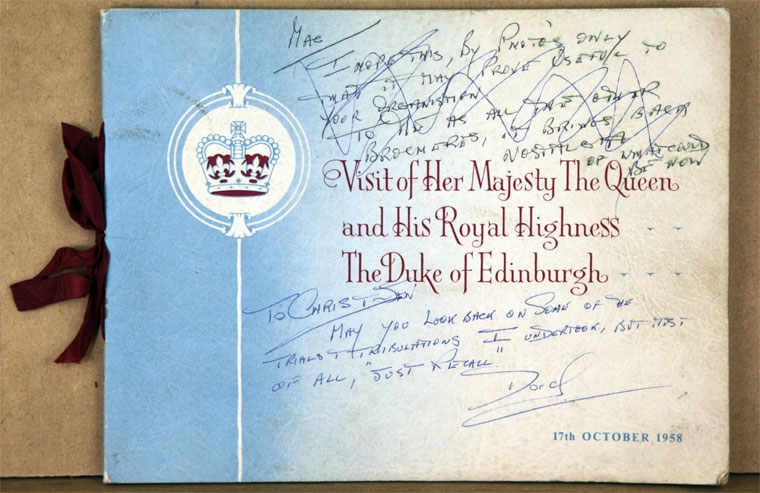 Mac
I HOPE THIS, BY PHOTOS ONLY
THAT IT MAY PROVE USEFUL TO
YOUR ORGANISTION
TO ME AS ALL THE OTHER
BROCHURES, IT BRINGS BACK
NOSTALGIA
OF WHAT COULD
BE NOW
Visit of Her Majesty The Queen
and His Royal Highness
The Duke of Edinburgh
TO CHRIS
MAY YOU LOOK BACK ON SOME OF THE
TRIALS & TRIBULATIONS I UNDERTOOK, BUT MOST
OF ALL, "JUST RECALL"
17th OCTOBER 1958